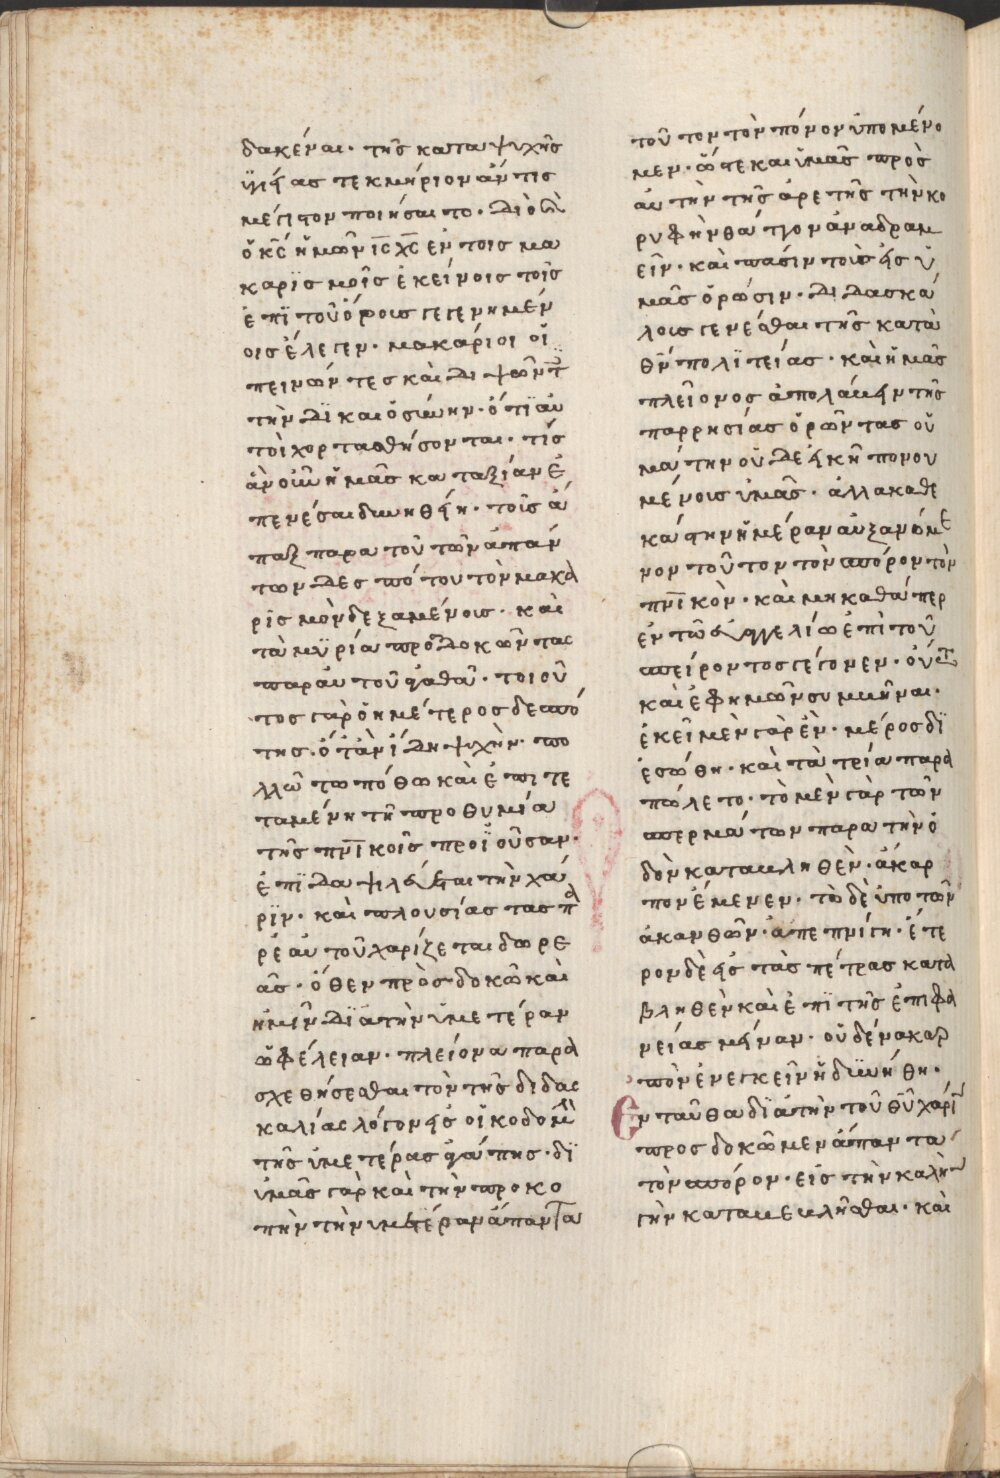 δακέναι· τῆς κατα ψυχῆς
ϋγείας τεκμήριον ἄν τις
μέγιστον ποιήσαιτο· διὸ καὶ
ὁ κ̅ς ἡμῶν ι̅ς χ̅ς ἐν τοῖς μα
καρισμοῖς ἐκείνοις τοῖς
ἐπὶ τοῦ ὄρους γεγενημέν
οις ἔλεγεν· μακάριοι οἱ
πεινῶντες καὶ διψῶντ̅
τὴν δικαιοσύνην· ὅτι αὐ
τοὶ χορτασθήσονται· τίς
ἂν οὖν ἡμᾶς καταξίαν ἐ
πενέσαι δυνηθείη· τοῖς ἅ
παξ παρα τοῦ τῶν ἁπάν
των δεσπότου τὸν μακα
ρισμὸν δεξαμένοις· καὶ
τὰ μυρία προσδοκῶντας
παραυτοῦ ἀγαθα· τοιοῦ
τος γὰρ ὁ ἡμέτερος δεσπό
της· ὅτὰν ἴδη ψυχὴν πο
λλῶ τω πόθω καὶ ἐπιτε
ταμένη τῆ προθυμία
τῆς πνικοῖς προϊοῦσαν·
ἐπιδαψιλεύεται τὴν χά
ριν· καὶ πλουσίας τας πα
ρεαυτοῦ χαρίζεται δωρε
ᾶς· ὅθεν προσδοκῶ καὶ
ἡμῖν διὰ τὴν ὑμετέραν
ὠφέλειαν· πλείονα παρα
σχεθήσεσθαι τὸν τῆς διδας
καλίας λόγον εἰς οἰκοδομὴν
τῆς ὑμετέρας ἀγάπης· δι
ὑμᾶς γὰρ καὶ τὴν προκο
πὴν τὴν ὑμετέραν ἅπαντα
τοῦτον τὸν πόνον ὑπομένο
μεν· ὥστε καὶ ὑμᾶς πρὸς
αὐτὴν τῆς ἀρετῆς τὴν κο
ρυφὴν θάττον ἀναδραμ
εῖν· καὶ πασιν τοῖς εἰς ὑ
μᾶς ὁρῶσιν· διδασκά
λοις γενέσθαι τῆς κατὰ
θ̅ν πολιτείας· καὶ ἡμᾶς
πλείονος ἀπολαύειν τῆς
παρρησίας ὁρῶντας οὐ
μάτην οὐδε εἰκῆ πονου
μένοις ὑμᾶς· ἀλλα καθε
κάστην ἡμέραν αὐξανόμε
νον τοῦτον τὸν σπόρον τὸν
πνικὸν· καὶ μη καθάπερ
ἐν τῶ εὐαγγελίω ἐπὶ τοῦ
σπείροντος γέγονεν· οὕτ̅
καὶ ἐφημῶν συμβῆναι·
ἐκεῖ μὲν γὰρ ἓν· μέρος δι
εσώθη· καὶ τὰ τρία παρα
πώλετο· τὸ μὲν γὰρ τῶν
σπερμάτων παρα τὴν ὁ
δὸν καταβληθὲν· ἄκαρ
πον ἔμενεν· τὸ δὲ ὑπο τῶν
ἀκανθῶν· ἀπεπνίγη· ἕτε
ρον δὲ εἰς τὰς πέτρας κατα
βληθὲν καὶ ἐπὶ τῆς ἐπιφα
νείας μείναν· οὐδένα καρ
πὸν ἐνεγκεῖν ἠδυνήθη·
Ενταῦθα διὰ τὴν τοῦ θ̅υ χάριν
προσδοκῶμεν ἅπαντα
τὸν σπόρον· εἰς τὴν καλὴν
γῆν καταβεβλῆσθαι· καὶ